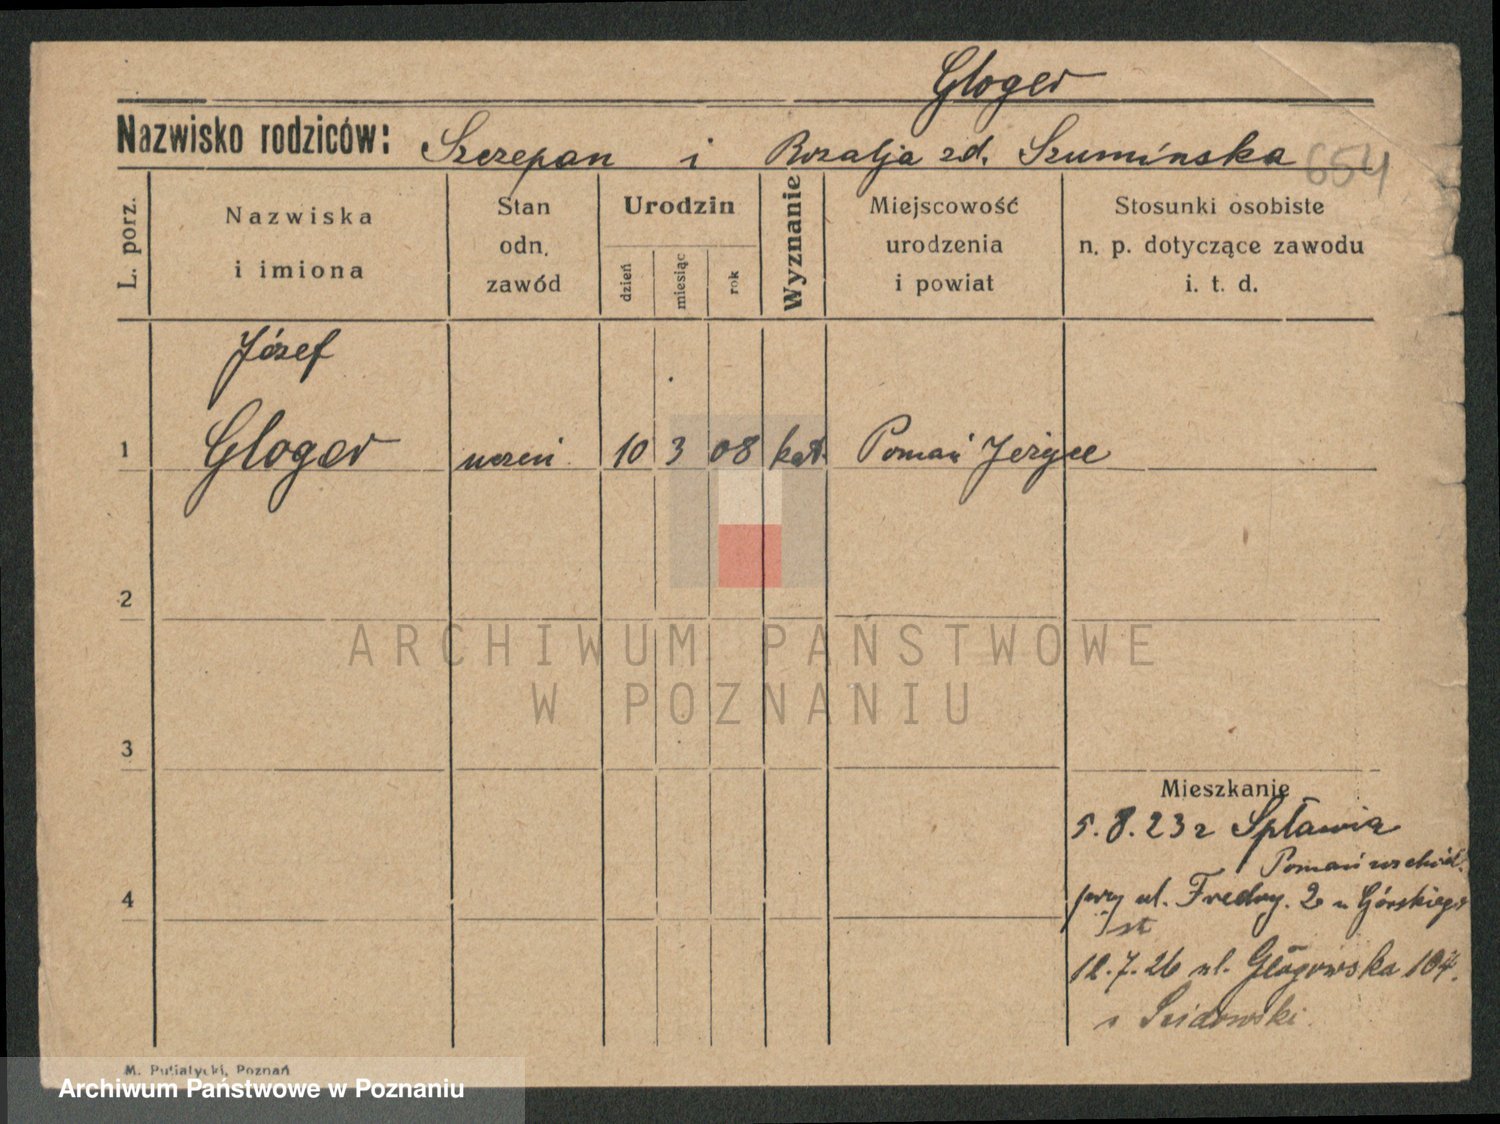 Gloger
Nazwisko rodziców: Szczepan i Rozalja zd. Szumińska 654
L. porz.
Nazwiska
i imiona
Stan
odn.
zawód
Urodzin
dzień
miesiąc
rok
Wyznanie
Miejscowość
urodzenia
i powiat
Stosunki osobiste
n. p. dotyczące zawodu
i. t. d.
Józef
1 Gloger uczeń 10 3 08 kat. Poznań Jeżyce
2
3
4
Mieszkanie
5.8.23 z Spławia
Poznań wschód.
przy ul. Fredry. 2 u Górskiego
12.7.26 ul. Głogowska 104.
M. Putiatycki, Poznań
ARCHIWUM PAŃSTWOWE
W POZNANIU
Archiwum Państwowe w Poznaniu